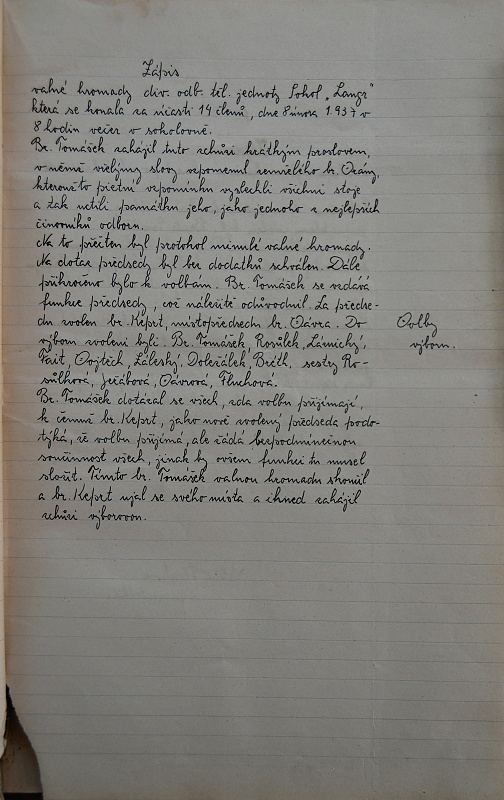 Zápis
valné hromady div. odb. těl. jednoty Sokol „Langr"
která se konala za účasti 14 členů, dne 8 února 1937 v
8 hodin večer v sokolovně.
Br. Tomášek zahájil tuto schůzi krátkým proslovem,
v němž vřelými slovy vzpomenul zemřelého br.
kteroužto pietní vzpomínku vyslechli všichni stoje
a tak uctili památku jeho, jako jednoho z nejlepších
činovníků odboru.
Na to přečten byl protokol minulé valné hromady.
Na dotaz předsedy byl bez dodatků schválen. Dále
přikročeno bylo k volbám. Br. Tomášek se vzdává
funkce předsedy, což náležitě odůvodnil. Za předse-
du zvolen br. Keprt, místopředsedu br. Vávra. Do
výboru zvoleni byli: Br. Tomášek, Rosůlek, Lámický,
Fait, Vojtěch, Záleský, Doležálek, Brétl, sestry Ro-
sůlková, Jeřábová, Vávrova, Fluchová.
Br. Tomášek dotázal se všech, zda volbu přijímají,
k čemuž br. Keprt, jako nově zvolený předseda podo-
týká, že volbu přijímá, ale žádá bezpodmínečnou
součinnost všech, jinak by ovšem funkci tu musel
složit. Tímto br. Tomášek valnou hromadu skončil
a br. Keprt ujal se svého místa a ihned zahájil
schůzi výborovou.
Volby
výboru.